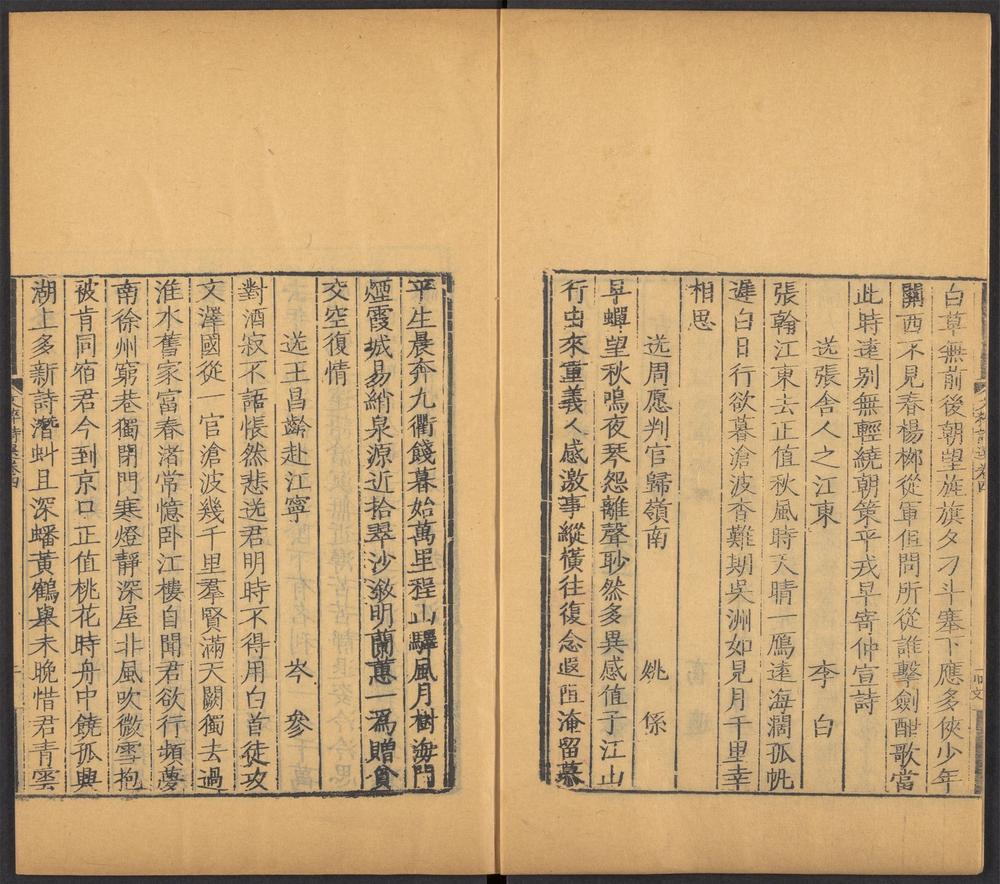 白草無前後朝望旌旗夕刁斗塞下應多俠少年
關西不見春楊柳從軍借問所從誰擊劍酣歌當
此時遠別無輕繞朝策平戎早寄仲宣詩
送張舍人之江東 李白
張翰江東去正值秋風時天晴一鴈遠海濶孤帆
遲白日行欲暮滄波杳難期吳洲如見月千里幸
相思
送周愿判官歸嶺南 姚係
早蟬望秋鳴夜琴怨離聲眇然多異感值子江山
行由來重義人感激事縱橫往復念遐阻淹留慕
平生晨奔九衢餞暮始萬里程山驛風月樹海門
煙霞城易綃泉源近拾翠沙溆明蘭蕙一爲贈貧
交空復情
送王昌齡赴江寧 岑參
對酒寂不語悵然悲送君明時不得用白首徒攻
文澤國從一官滄波幾千里羣賢滿天闕獨去過
淮水舊家富春渚常憶卧江樓自聞君欲行頻夢
南徐州窮巷獨閉門寒燈靜深屋北風吹微雪抱
被肯同宿君今到京口正值桃花時舟中饒孤興
湖上多新詩潛虯且深蟠黃鶴舉未晚惜君青雲